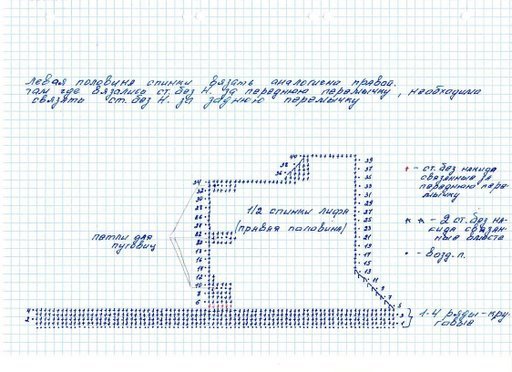 Левая половина спинки вязать аналогично правой.
Там где вязались ст. без н. за переднюю перемычку, необходимо
связать ст. без н. за заднюю перемычку
40
39
38
37
36
35
34
33
32
31
30
29
28
27
26
25
24
23
22
21
20
19
18
17
16
15
14
13
12
11
10
9
8
7
6
5
4
3
2
1
1/2 спинки лифа
(правая половина)
петли для
пуговиц
- ст. без накида
связанные за
переднюю пере-
мычку
- 2 ст. без на-
кида связан-
ные вместе
- возд. п.
1-4 ряды - кру-
говые